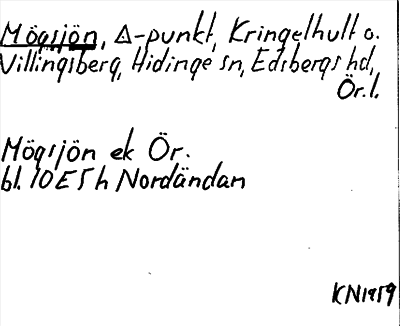 Mögsjön, △-punkt, Kringelhult o.
Villingsberg, Hidinge sn, Edsbergs hd,
Ör.l.
Mögsjön ek Ör.
bl. 10E5h Nordändan
KN1959